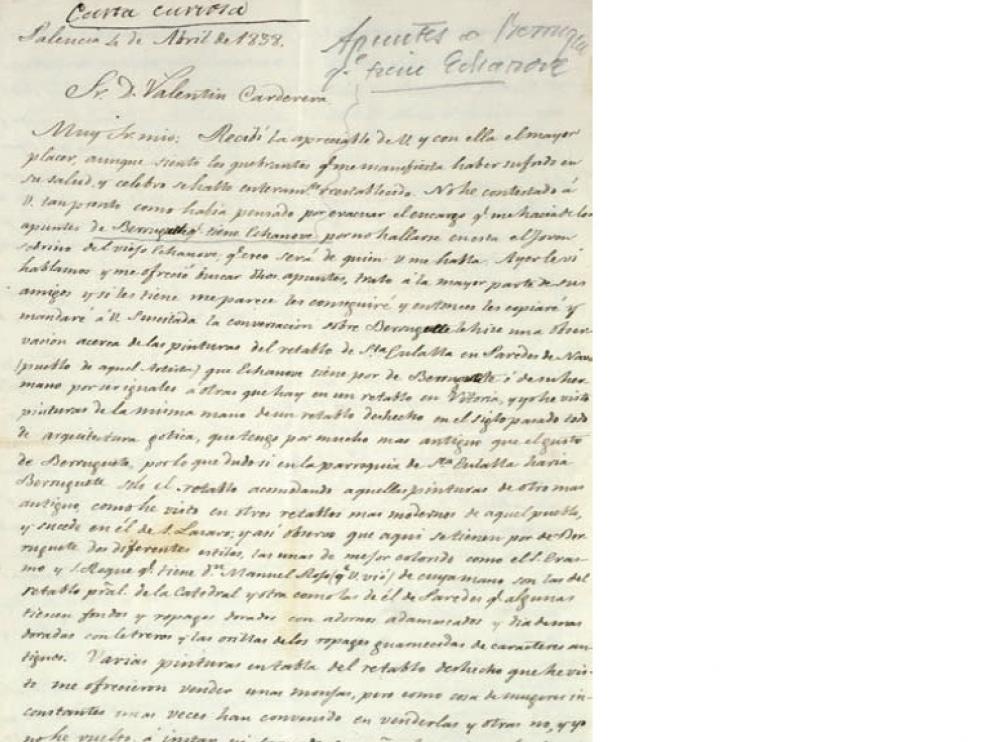 Carta curiosa
Palencia 4 de Abril de 1838.
Apuntes de Berrugte
q.e tiene Echanove
Sr. D. Valentin Carderera
Muy Sr. mio: Recibí la apreciable de V. y con ella el mayor
placer, aunque siento los quebrantos q.e me manifiesta haber sufrido en
su salud, y celebro se halle enteram.te restablecido. No he contestado á
V. tan pronto como habia pensado por evacuar el encargo q.e me hacia de los
apuntes de Berruguete q.e tiene Echanove por no hallarse en esta el Joven
sobrino del viejo Echanove, q.e creo será de quien V. me habla. Ayer le vi
hablamos y me ofreció buscar dhos apuntes, trato á la mayor parte de sus
amigos y si les tiene me parece les conseguiré y entonces les copiaré y
mandaré á V. Suscitada la conversacion sobre Berruguete le hice una obser-
vacion acerca de las pinturas del retablo de S.ta Eulalia en Paredes de Nava
(pueblo de aquel Artista) que Echanove tiene por de Berruguete ó de su her-
mano por ser iguales á otras que hay en un retablo en Vitoria, y yo he visto
pinturas de la misma mano de un retablo deshecho en el siglo pasado todo
de arquitectura gotica, que tengo por mucho mas antiguo que el gusto
de Berruguete, por lo que dudo si en la parroquia de S.ta Eulalia haria
Berruguete solo el retablo acomodando aquellas pinturas de otro mas
antiguo, como he visto en otros retablos mas modernos de aquel pueblo,
y sucede en él de S. Lazaro; y asi observo que aqui se tienen por de Ber-
ruguete dos diferentes estilos, las unas de mejor colorido como el S. Eras-
mo y S. Roque q.e tiene D.n Manuel (q.e V. vió) de cuya mano son las del
retablo pral. de la Catedral y otra como las de él de Paredes q.e algunas
tienen fondos y ropages dorados con adornos adamascados y diademas
doradas con letreros y las orillas de los ropages guarnecidas de caracteres an-
tiguos. Varias pinturas en tabla del retablo deshecho que he vis-
to me ofrecieron vender unas monjas, pero como cosa de mugeres in-
constantes unas veces han convenido en venderlas y otras no, y yo
no he vuelto á instar